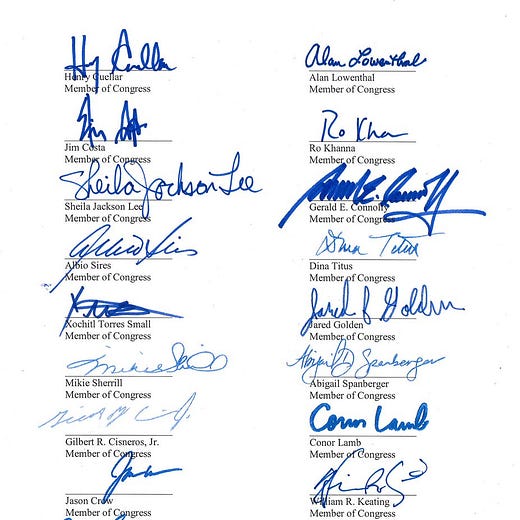 Henry Cuellar
Henry Cuellar
Member of Congress
Alan Lowenthal
Alan Lowenthal
Member of Congress
Jim Costa
Jim Costa
Member of Congress
Ro Khanna
Ro Khanna
Member of Congress
Sheila Jackson Lee
Sheila Jackson Lee
Member of Congress
Gerald E. Connolly
Member of Congress
Albio Sires
Albio Sires
Member of Congress
Dina Titus
Dina Titus
Member of Congress
Xochitl Torres Small
Member of Congress
Jared F Golden
Jared Golden
Member of Congress
Mikie Sherrill
Mikie Sherrill
Member of Congress
Abigail D Spanberger
Abigail Spanberger
Member of Congress
Gilbert R. Cisneros, Jr.
Member of Congress
Conor Lamb
Conor Lamb
Member of Congress
Jason Crow
Member of Congress
William R. Keating
Member of Congress